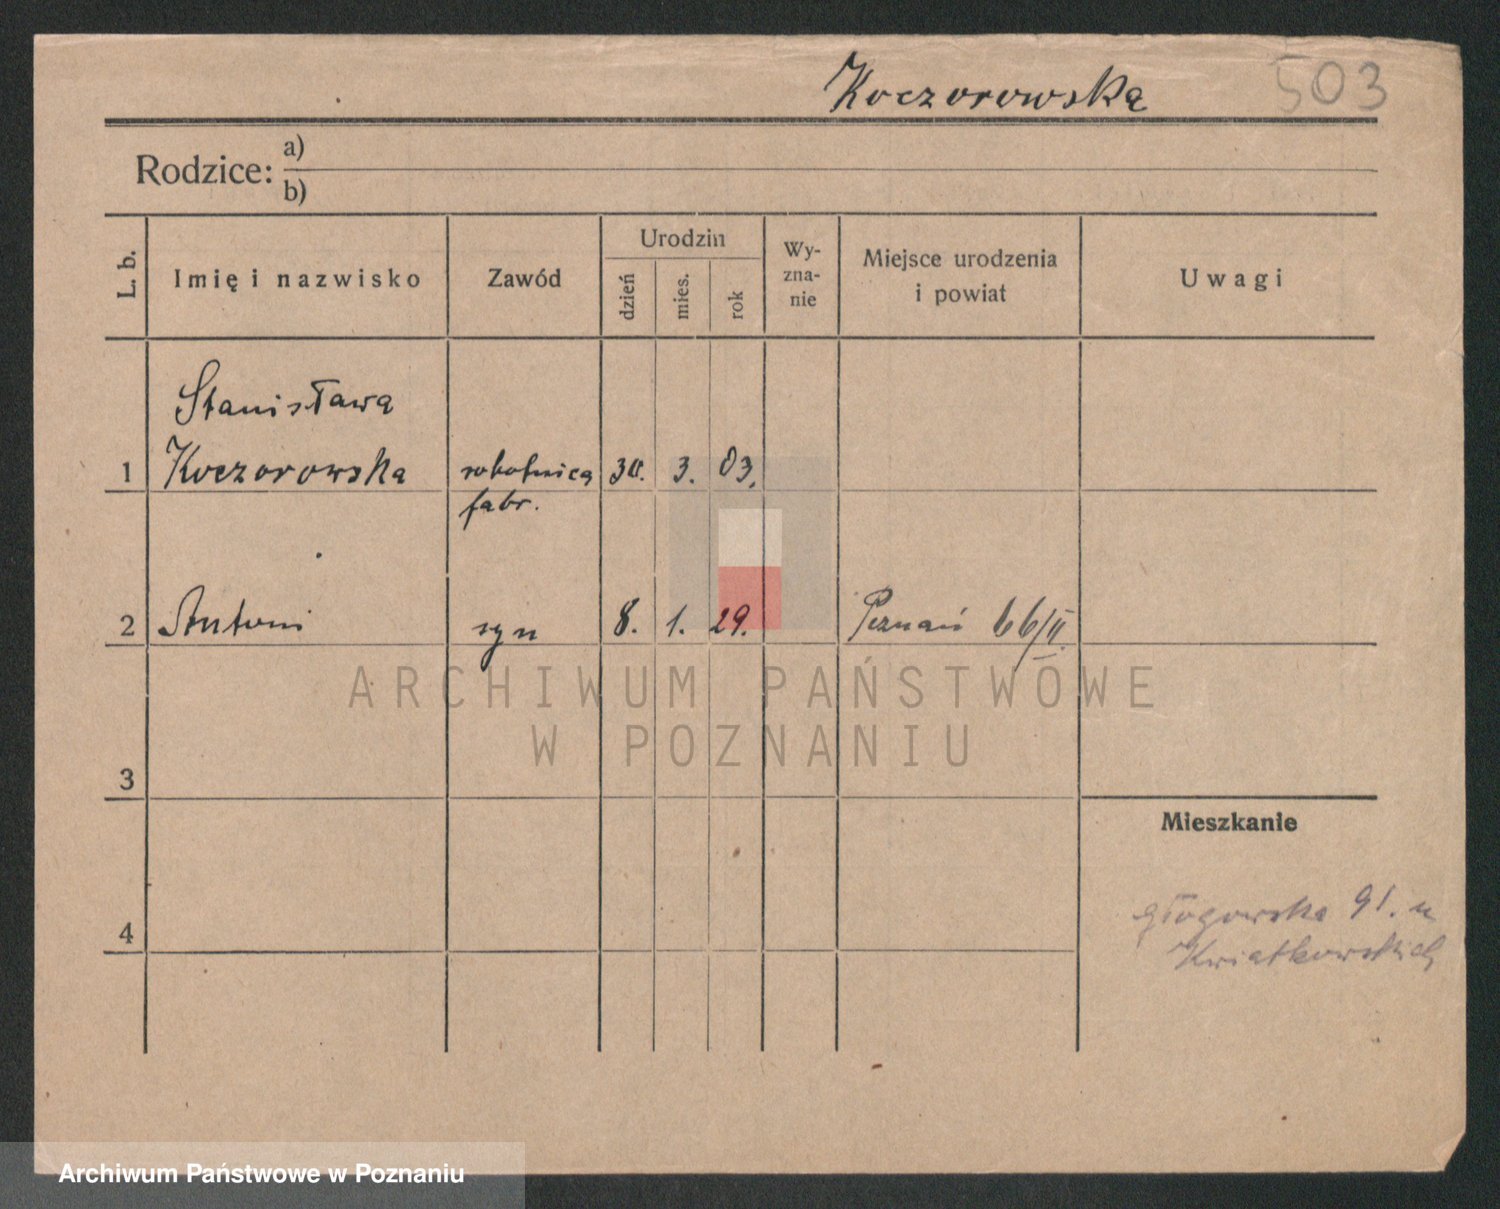 Koczorowska 503
Rodzice: a)
b)
L. b.
Imię i nazwisko
Zawód
Urodzin
dzień
mies.
rok
Wy-
zna-
nie
Miejsce urodzenia
i powiat
Uwagi
Stanisława
1 Koczorowska robotnica 30. 3. 03.
fabr.
2 Antoni syn 8. 1. 29. Poznań 66/II.
ARCHIWUM PAŃSTWOWE
W POZNANIU
3
Mieszkanie
głogowska 91. u
Kwiatkowskich
4
Archiwum Państwowe w Poznaniu